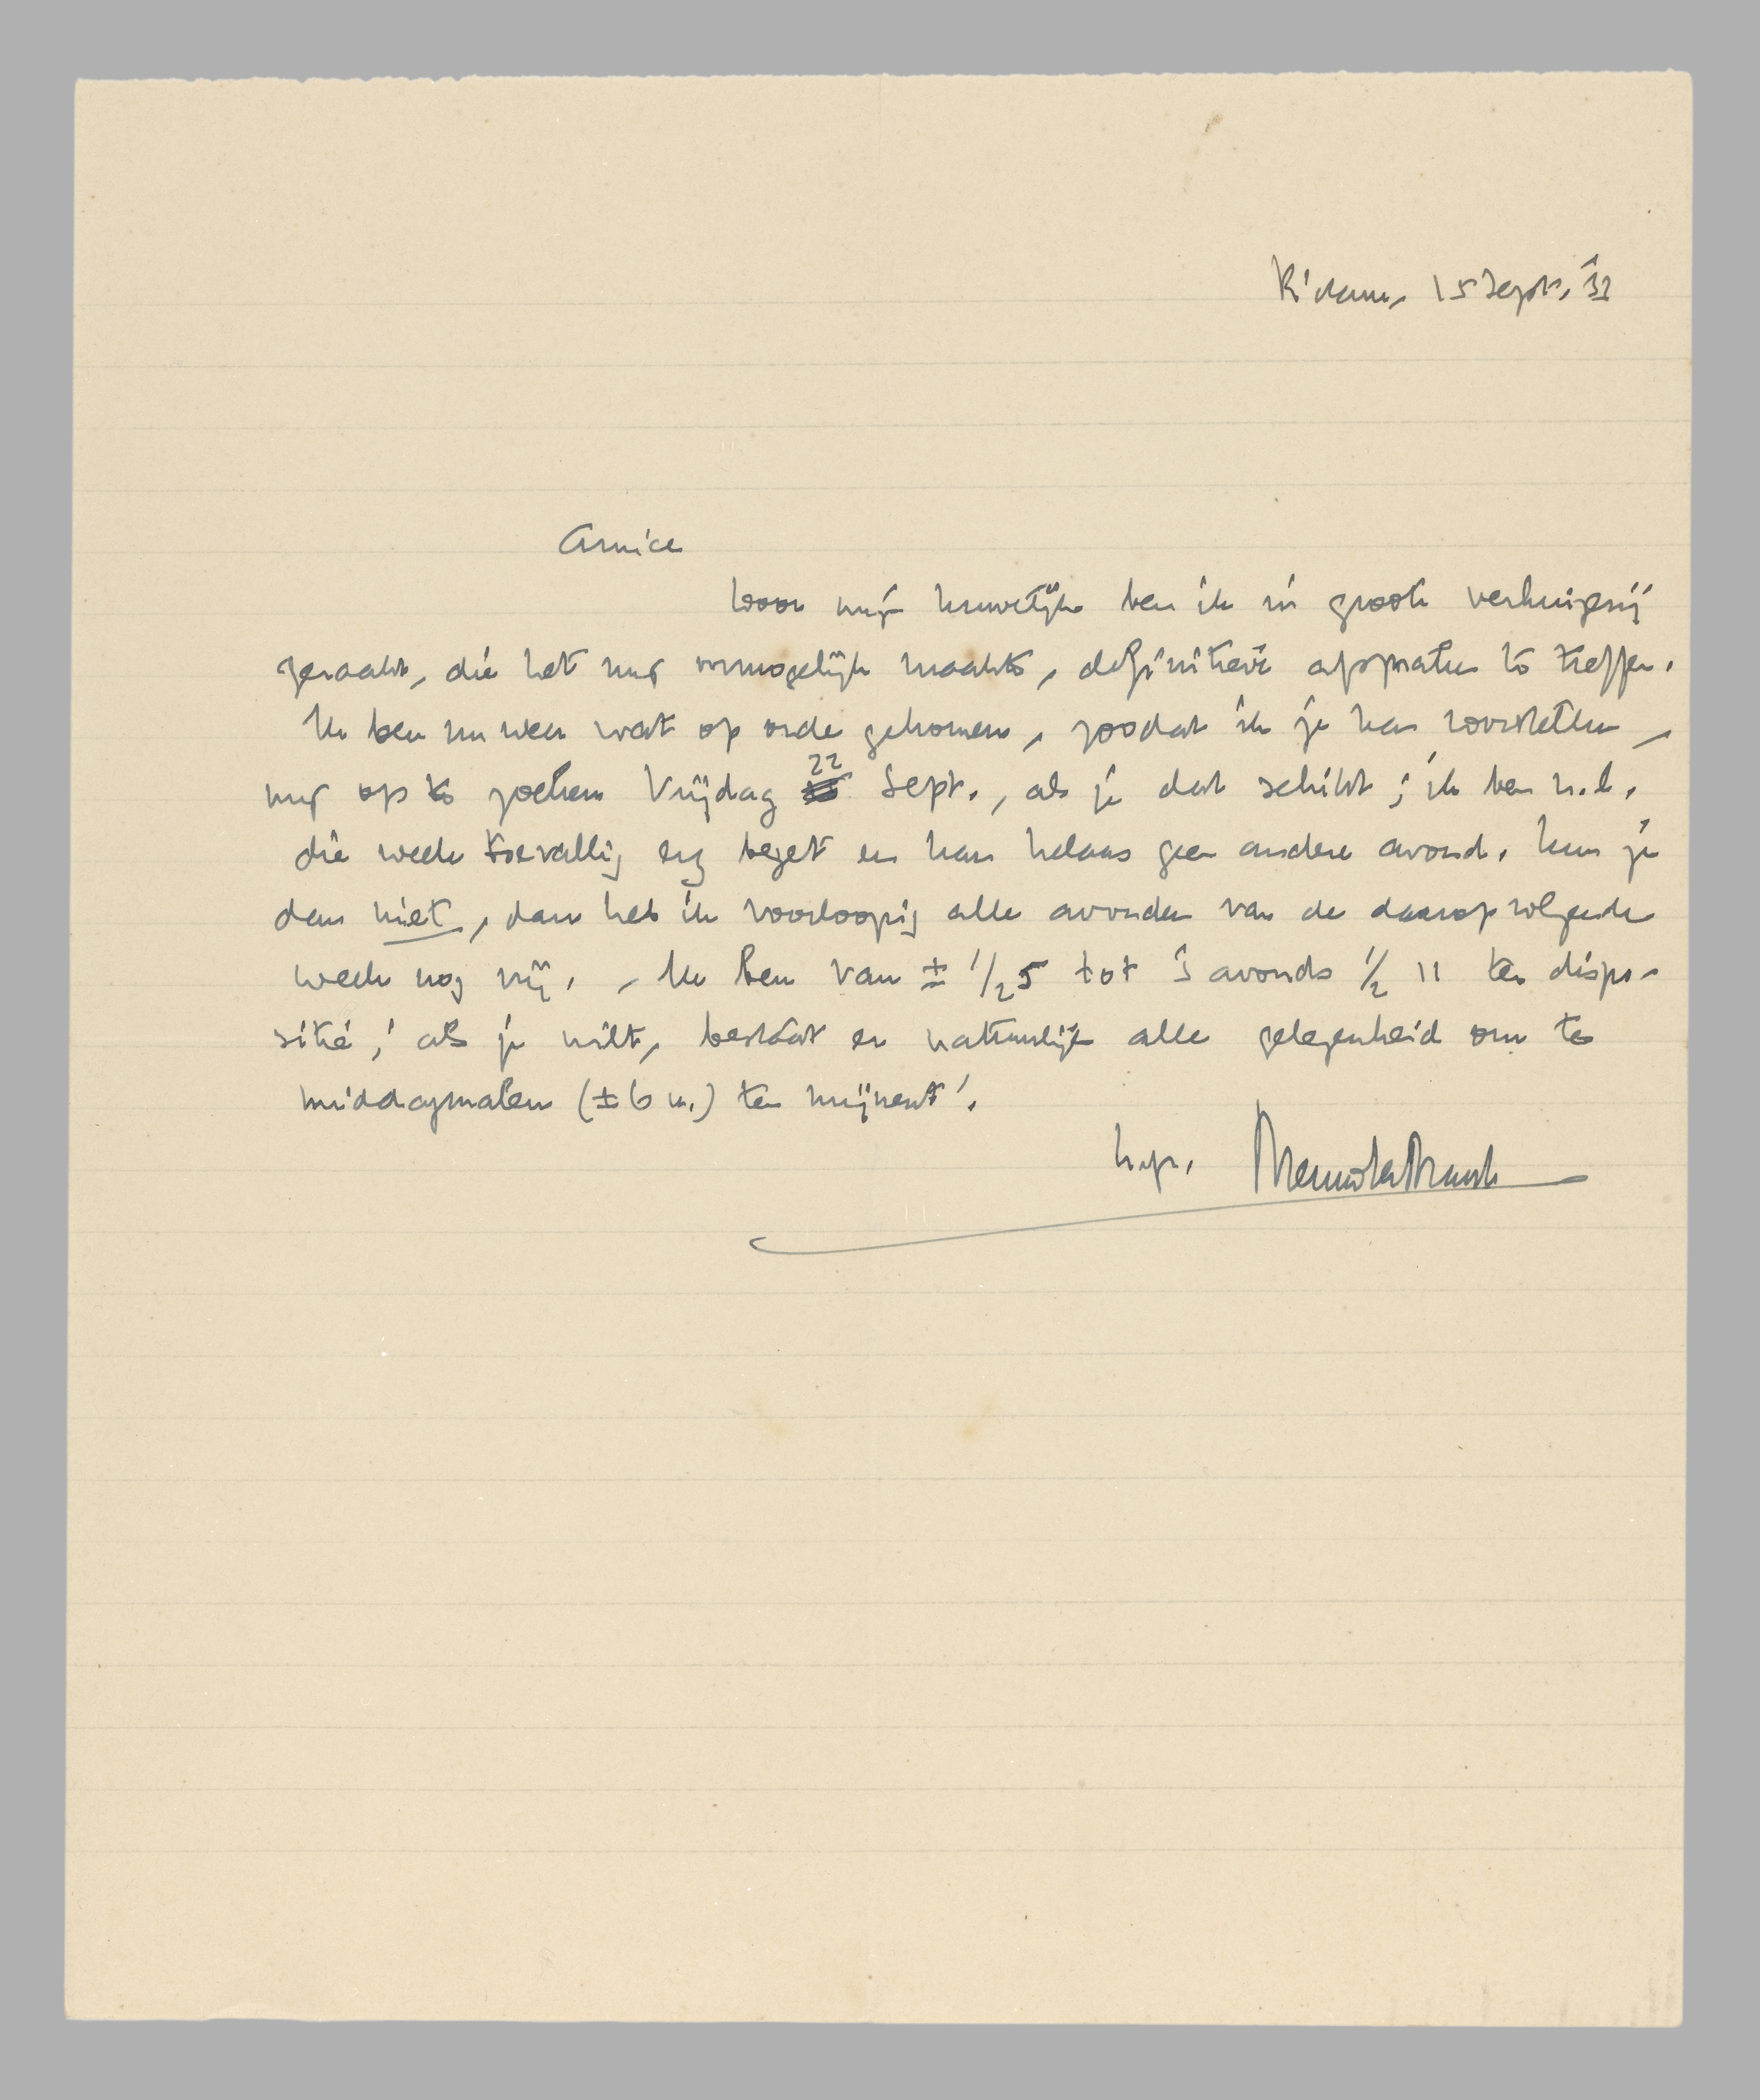 R'dam, 15 Sept. '33
Amice
Door mijn huwelijk ben ik in groote verhuizerij
geraakt, die het mij onmogelijk maakte, definitieve afspraken te treffen.
Ik ben nu weer wat op orde gekomen, zoodat ik je kan voorstellen,
mij op te zoeken Vrijdag 22 Sept., als je dat schikt; ik ben n.l.
die week toevallig erg bezet en kan helaas geen andere avond. Kun je
dan niet, dan heb ik voorloopig alle avonden van de daaropvolgende
week nog vrij. - Ik ben van ± 1/2 5 tot 's avonds 1/2 11 ter dispo-
sitie; als je wilt, bestaat er natuurlijk alle gelegenheid om te
middagmalen (± 6 u.) ten mijnent!
h.gr. Menno ter Braak